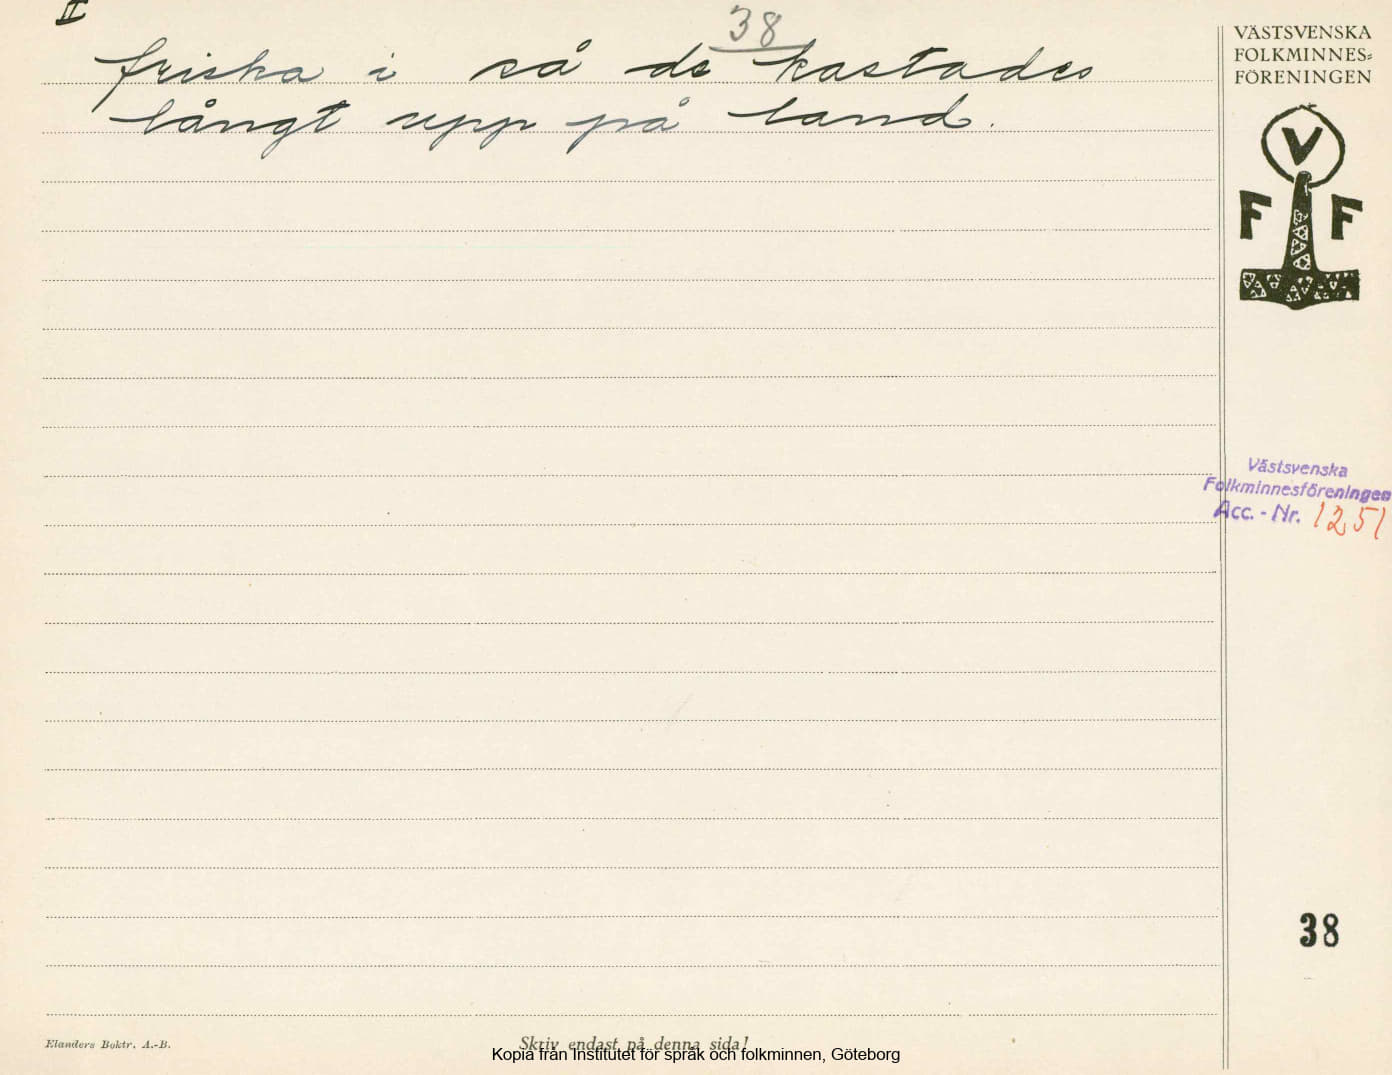 II
38
friska i så de kastades
långt upp på land.
VÄSTSVENSKA
FOLKMINNES=
FÖRENINGEN
V
F F
Västsvenska
Folkminnesföreningen
Acc. - Nr. 1251
38
Elanders Boktr. A.-B.
Skriv endast på denna sida!
Kopia från Institutet för språk och folkminnen, Göteborg